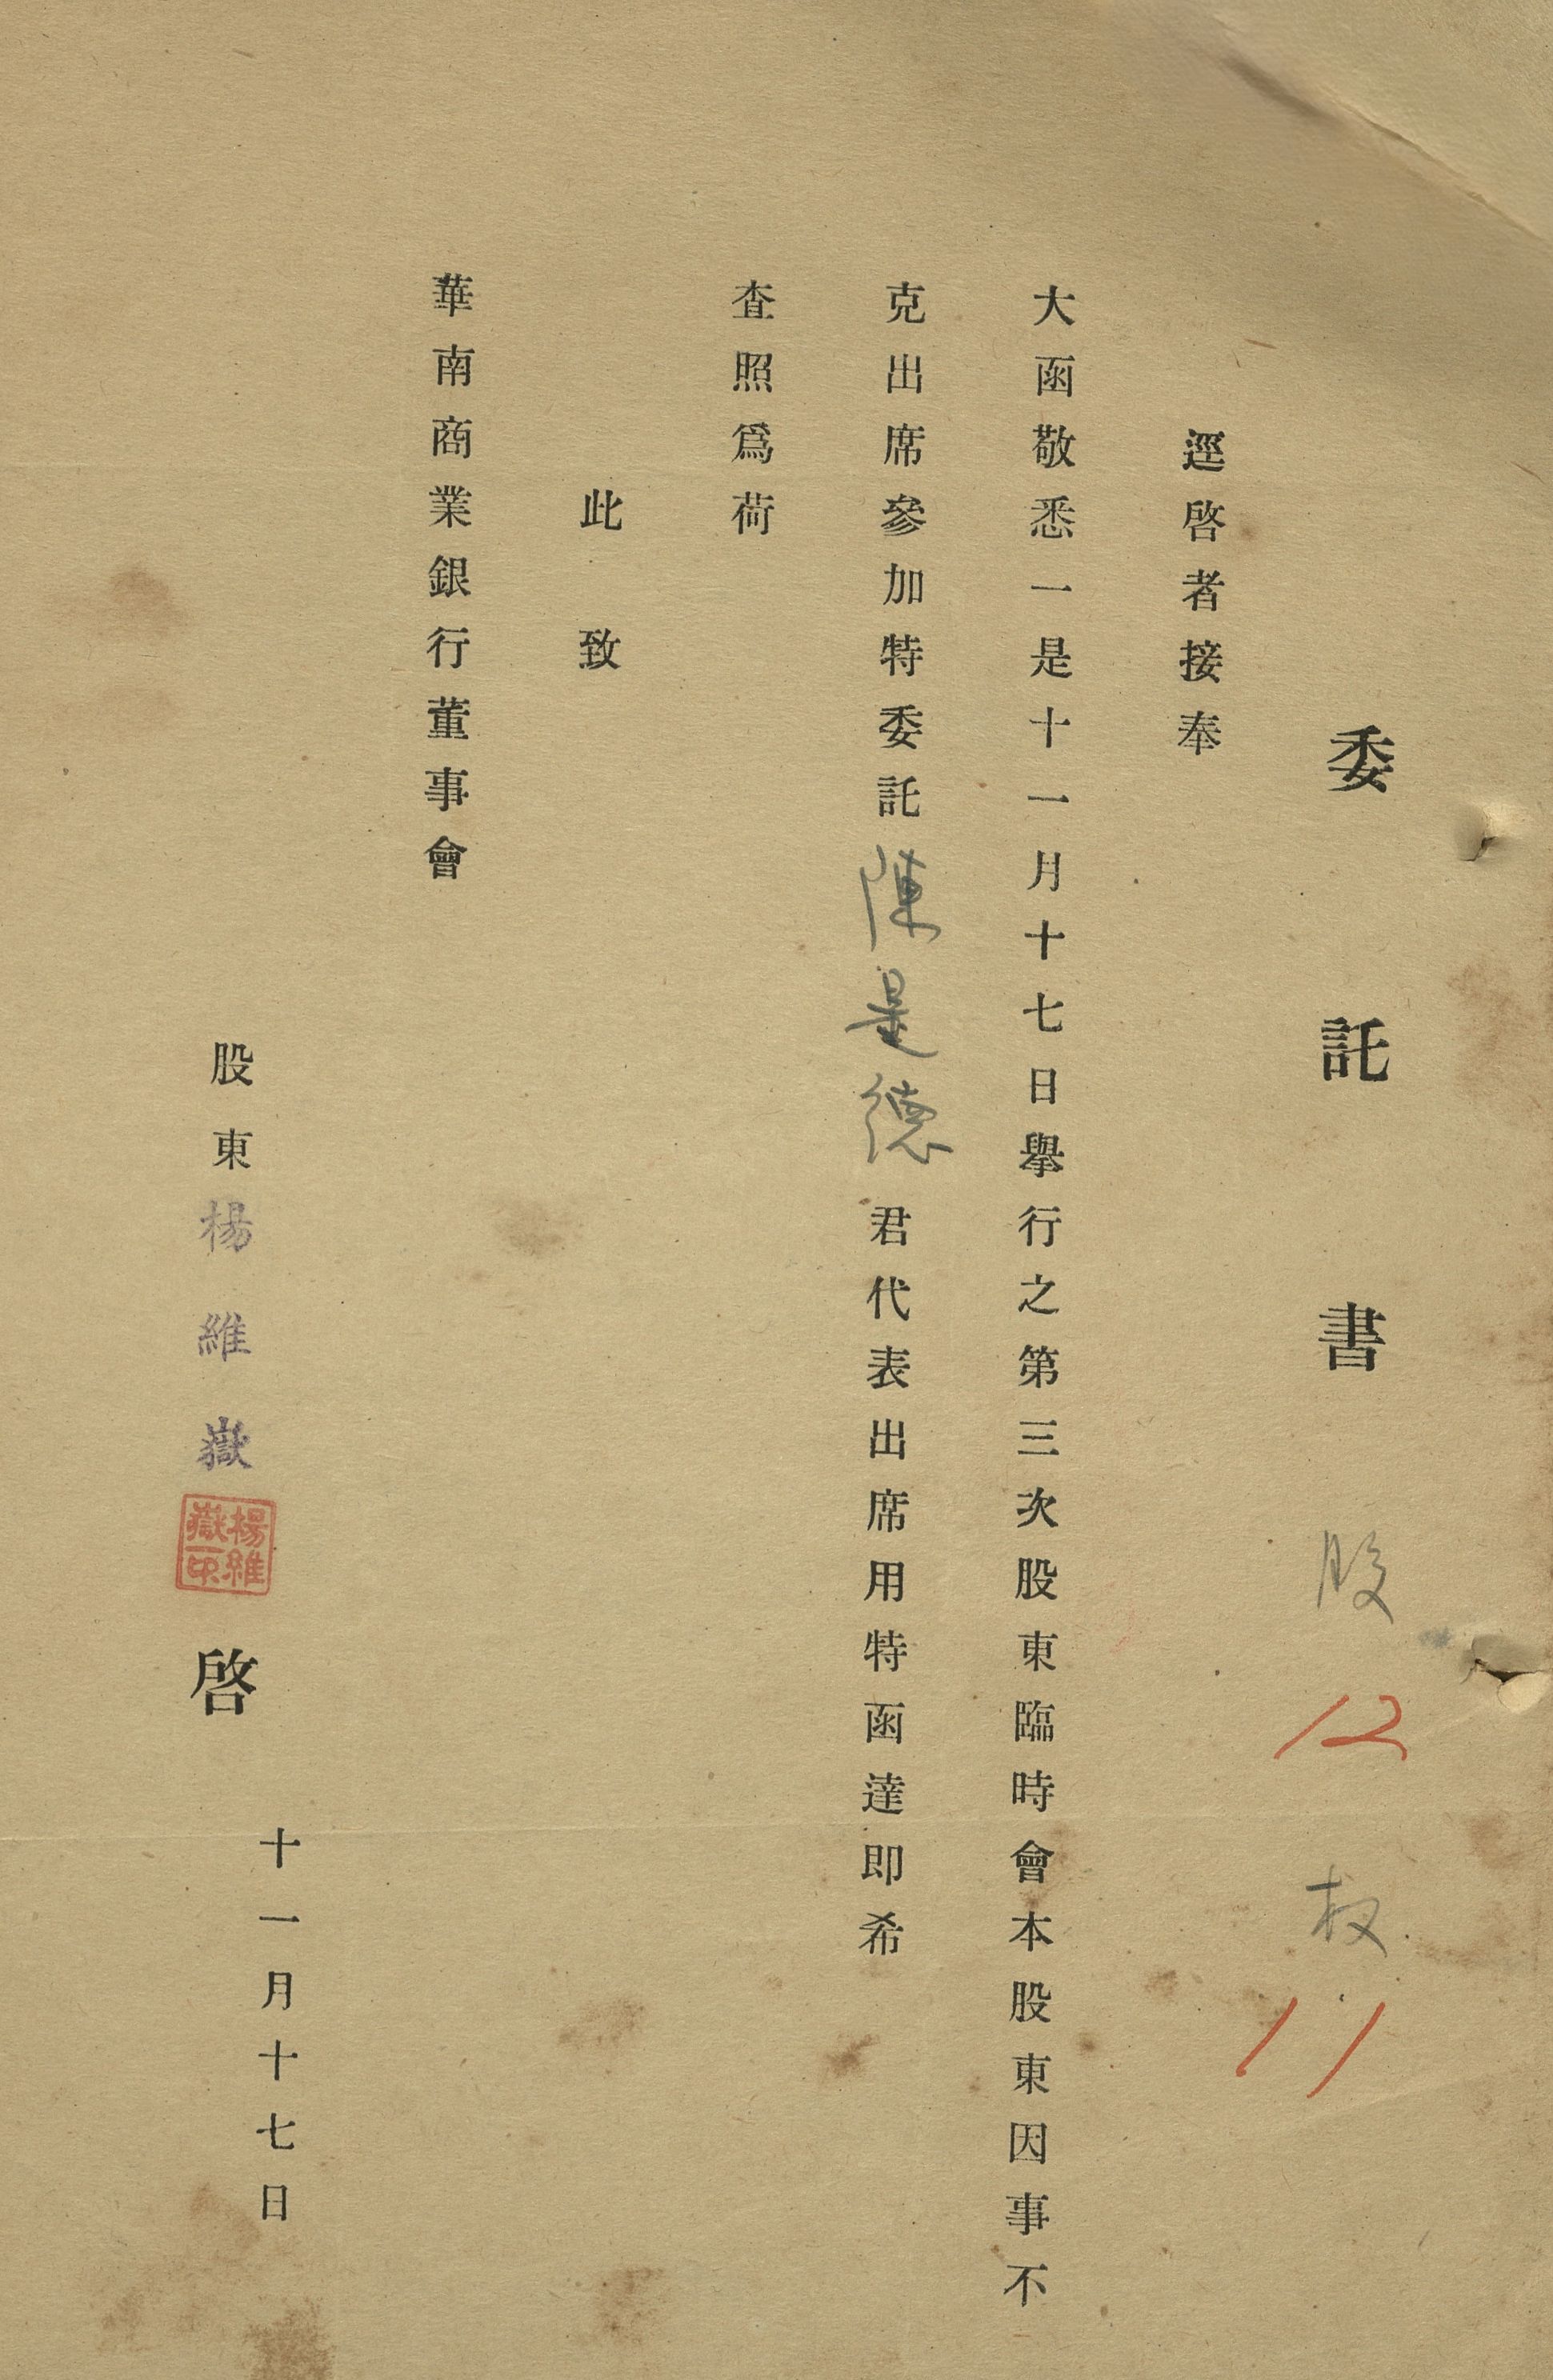 委託書 股 12 权 11
逕啓者接奉
大函敬悉一是十一月十七日舉行之第三次股東臨時會本股東因事不
克出席參加特委託陳是德君代表出席用特函達即希
查照爲荷
此致
華南商業銀行董事會
股東楊維嶽 啓
楊維嶽印
十一月十七日